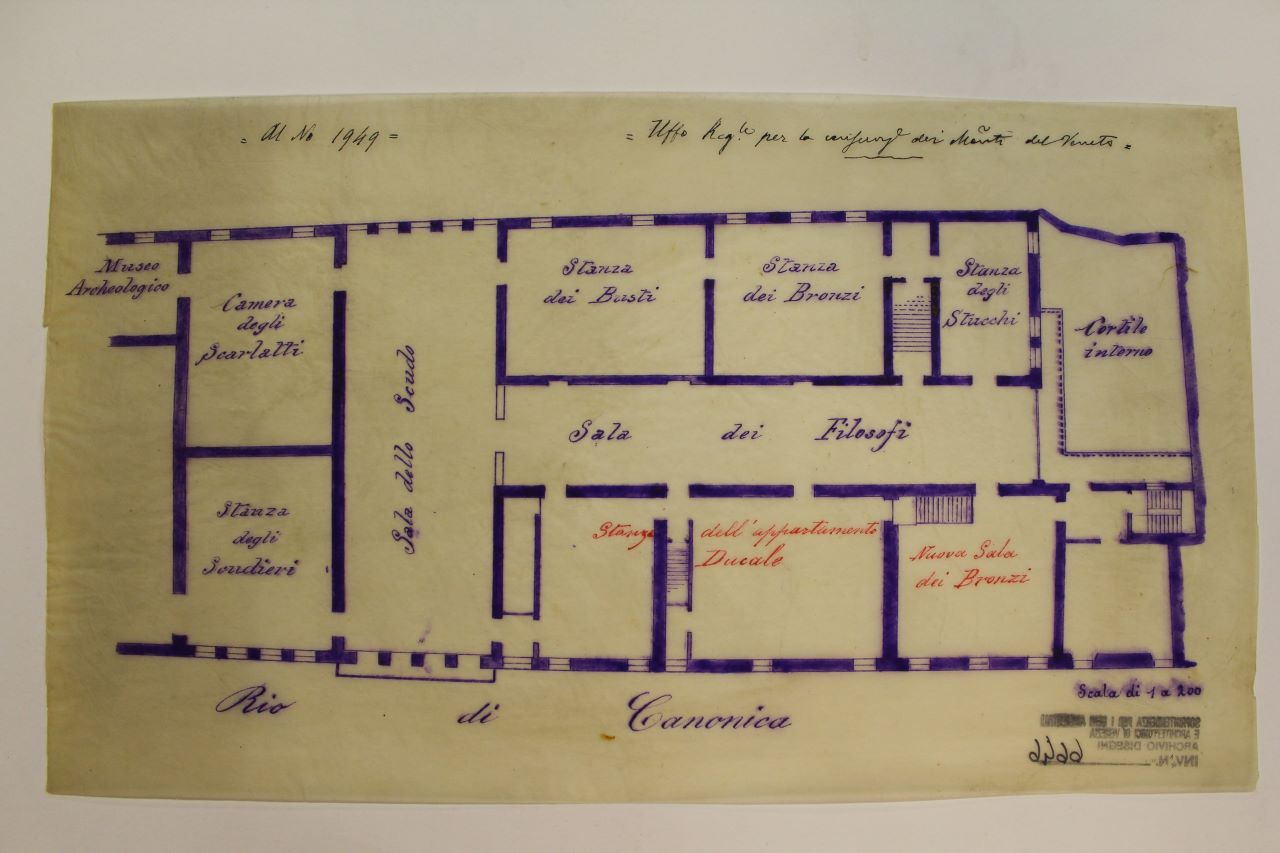 = Al No 1949 =
= Uffo Reg.le per la dei del Veneto =
Museo
Archeologico
Camera
degli
Scarlatti
Sala dello Scudo
Stanza
dei Busti
Stanza
dei Bronzi
Stanza
degli
Stucchi
Cortile
interno
Sala dei Filosofi
Stanza
degli
Scudieri
Stanze dell'appartamento
Ducale
Nuova Sala
dei Bronzi
Rio di Canonica
Scala di 1 a 200
SOPRINTENDENZA PER I BENI AMBIENTALI
E ARCHITETTONICI DI VENEZIA
ARCHIVIO DISEGNI
INV. N. 6646